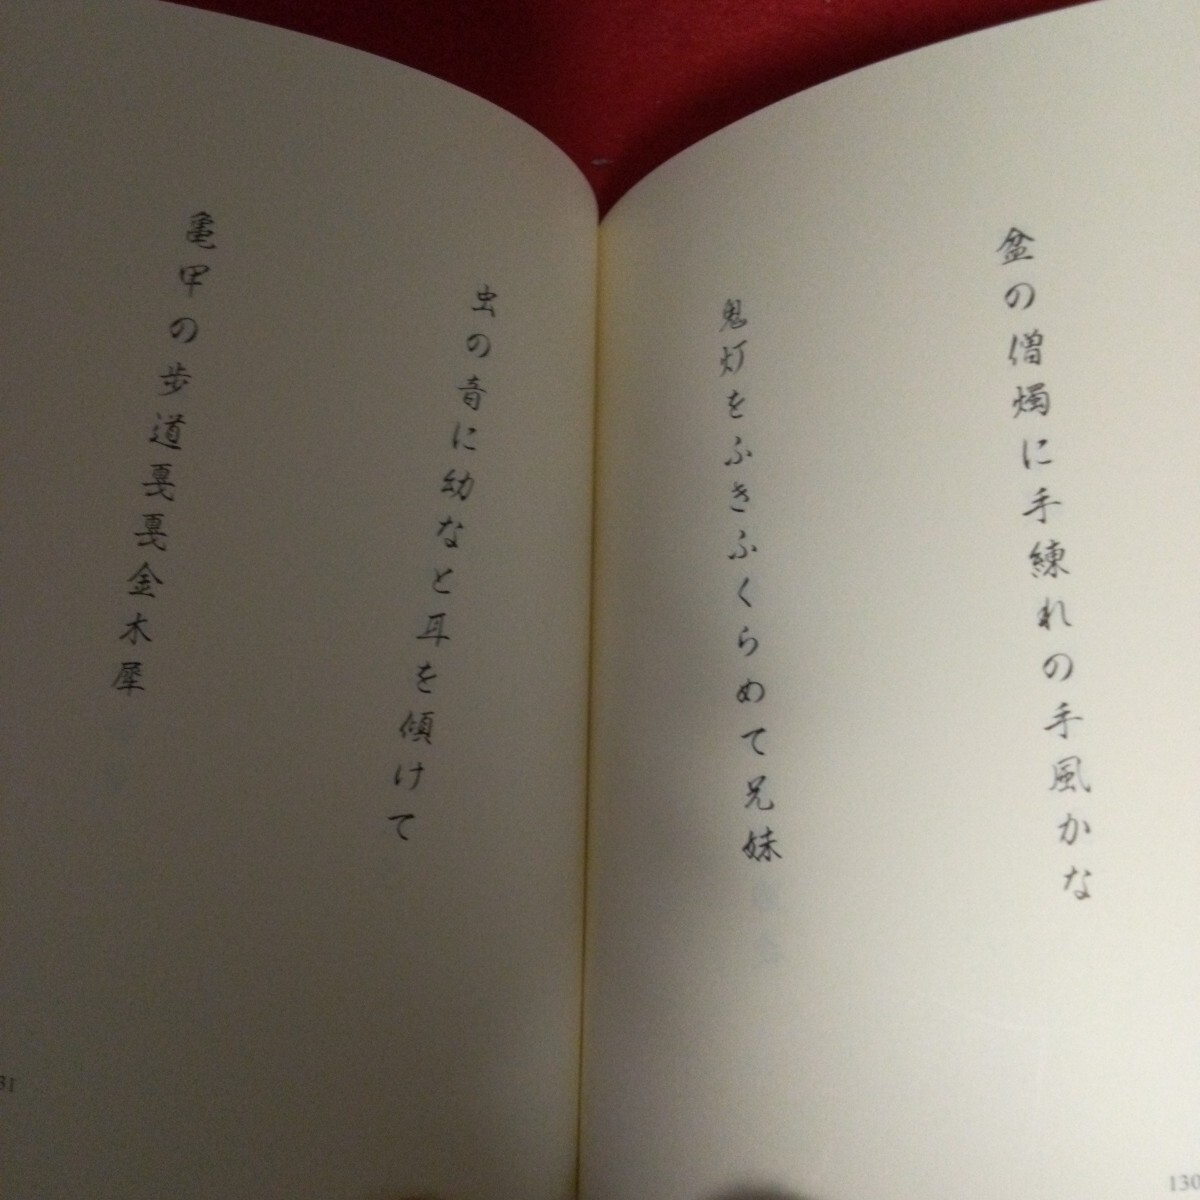 盆の僧燭に手練れの手風かな
鬼灯をふきふくらめて兄妹
130
虫の音に幼なと耳を傾けて
亀甲の歩道戛戛金木犀
31